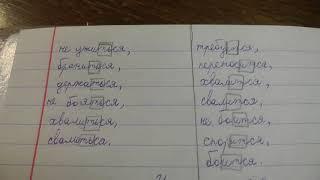 не ужиться,
бранится,
держаться,
не бояться,
хвалиться,
свалиться.
требуется,
переносится,
хвалится,
свалится,
не боится,
спорится,
борится.